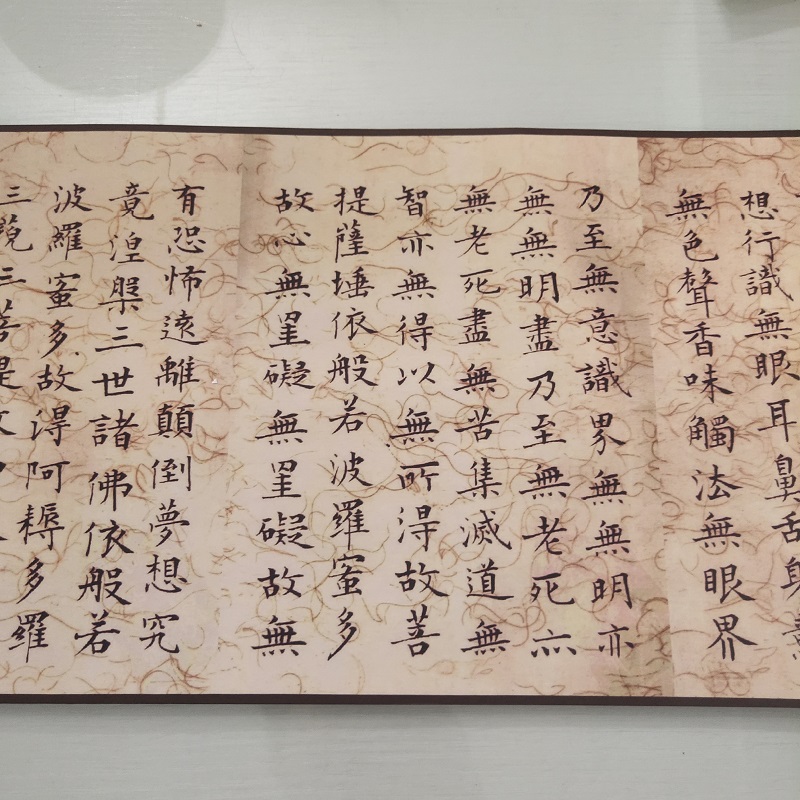 想行識無眼耳鼻舌身意
無色聲香味觸法無眼界
乃至無意識界無無明亦
無無明盡乃至無老死亦
無老死盡無苦集滅道無
智亦無得以無所得故菩
提薩埵依般若波羅蜜多
故心無罣礙無罣礙故無
有恐怖遠離顛倒夢想究
竟湼槃三世諸佛依般若
波羅蜜多故得阿耨多羅
三藐三菩提故